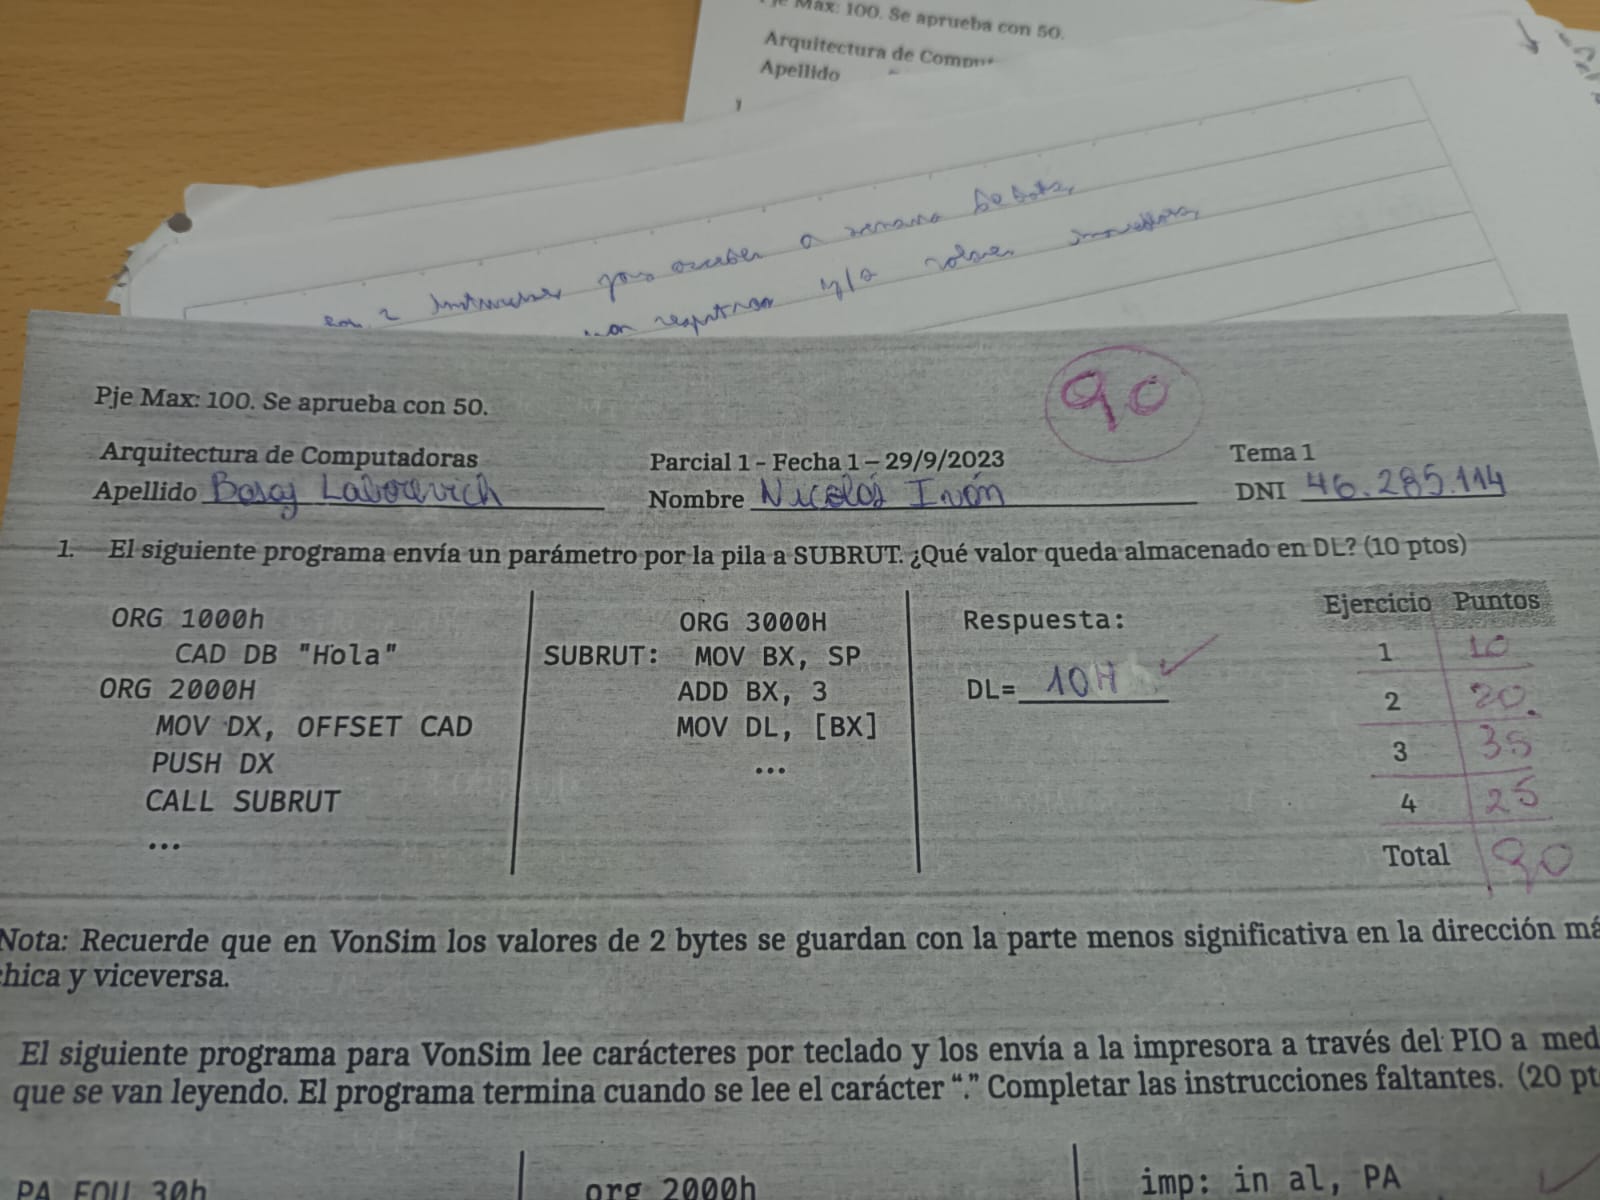 Pje Max: 100. Se aprueba con 50.
Arquitectura de Comput
Apellido
a semana
y/o
Pje Max: 100. Se aprueba con 50.
90
Arquitectura de Computadoras
Parcial 1 - Fecha 1 – 29/9/2023
Tema 1
Apellido Bosaj Laborevich
Nombre Nicolás Iván
DNI 46.285.114
1. El siguiente programa envía un parámetro por la pila a SUBRUT. ¿Qué valor queda almacenado en DL? (10 ptos)
ORG 1000h
CAD DB "Hola"
ORG 2000H
MOV DX, OFFSET CAD
PUSH DX
CALL SUBRUT
...
ORG 3000H
SUBRUT: MOV BX, SP
ADD BX, 3
MOV DL, [BX]
...
Respuesta:
DL= 10H
Ejercicio Puntos
1 10
2 20.
3 35
4 25
Total 90
Nota: Recuerde que en VonSim los valores de 2 bytes se guardan con la parte menos significativa en la dirección má
chica y viceversa.
El siguiente programa para VonSim lee carácteres por teclado y los envía a la impresora a través del PIO a med
que se van leyendo. El programa termina cuando se lee el carácter “.” Completar las instrucciones faltantes. (20 pt
PA EQU 30h
org 2000h
imp: in al, PA